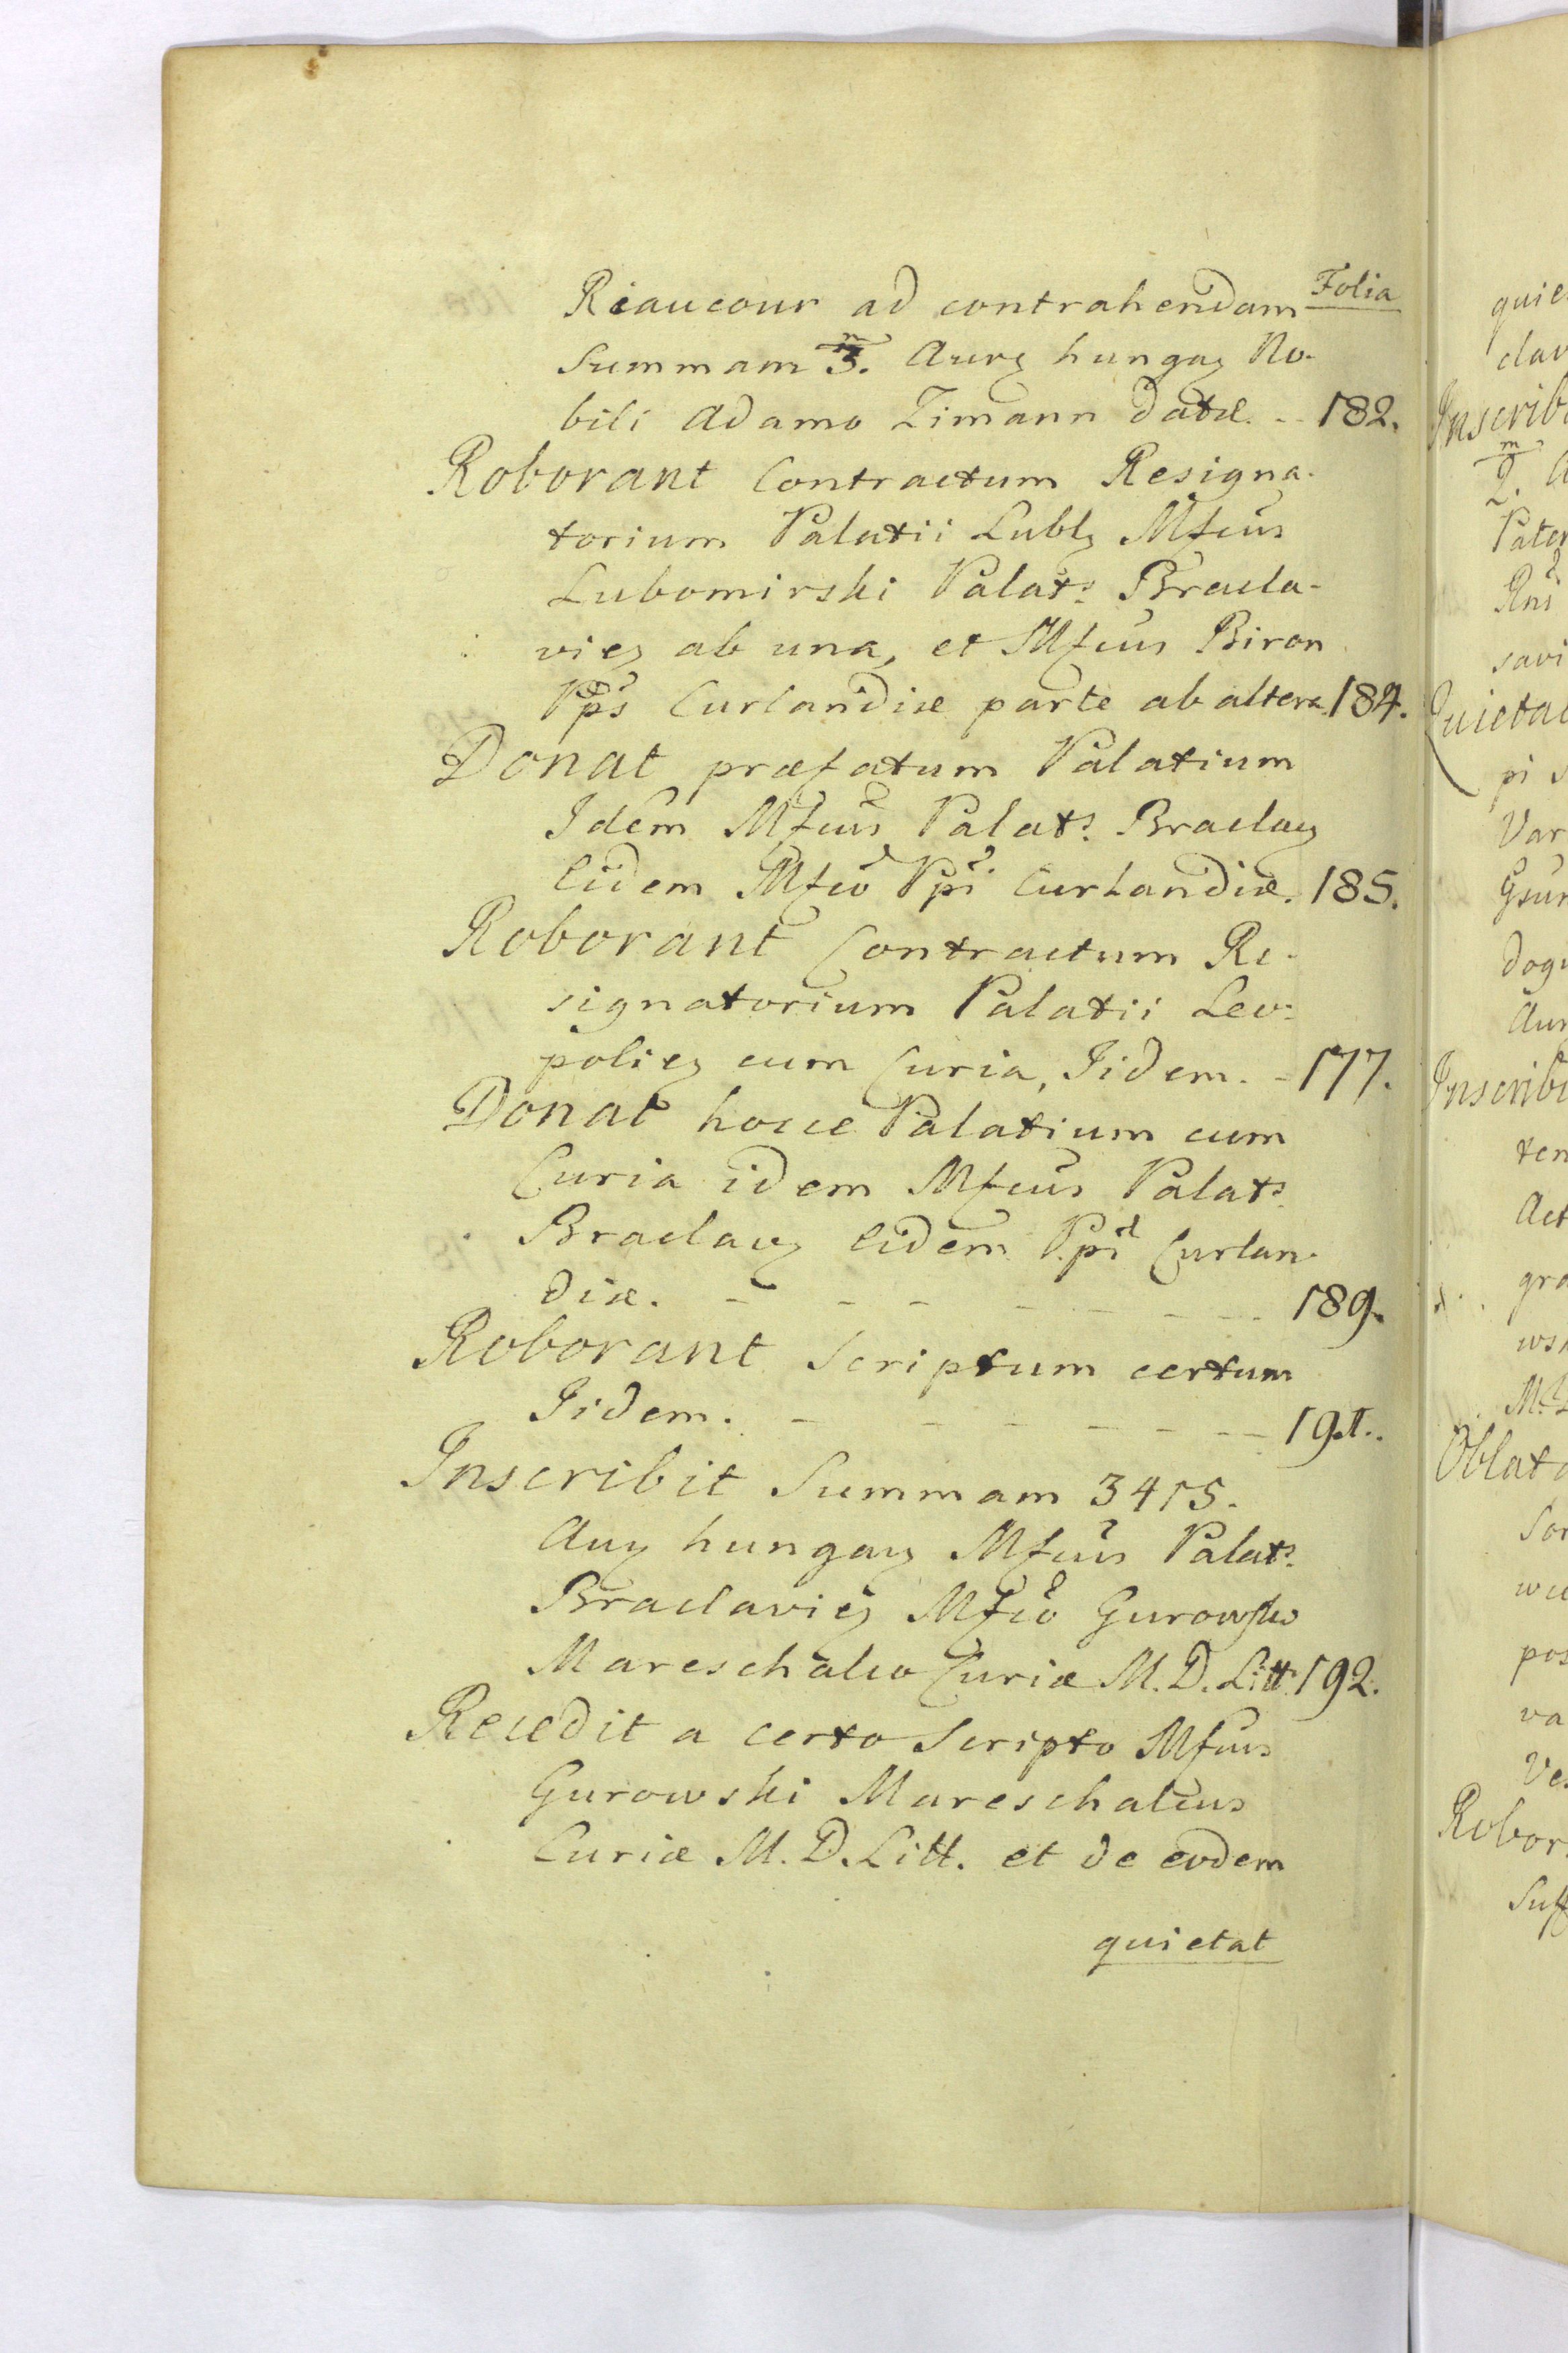 Folia
Riaucour ad contrahendam
Summam 3. Aurq hungaq No-
bili Adamo Zimann datæ. - - 182.
Roborant Contractum Resigna-
torium Palatii Lublq Mfcus
Lubomirski Palats Bracla-
vieq ab una, et Mfcus Biron
Pps Curlandiæ parte ab altera 184.
Donat præfatum Palatium
Idem Mfcus Palats Braclaq
Eidem Mfco Ppi Curlandiæ. 185.
Roborant Contractum Re-
signatorium Palatii Leo-
polieq cum Curia, Iidem. - 177.
Donat hocce Palatium cum
Curia idem Mfcus Palats
Braclavq Eidem Ppi Curlan-
diæ. - - - - - - - 189.
Roborant Scriptum certum
Iidem. - - - - - - - 191.
Inscribit Summam 3415.
Auq hungaq Mfcus Palats
Braclavieq Mfco Gurowsko
Mareschalco Curiæ M. D. Litt. 192.
Recedit a certo Scripto Mfcus
Gurowski Mareschalcus
Curiæ M. D. Litt. et de eodem
quietat
Inscrib
Pater
savi
Quietat
pi
Var
Aur
Inscribi
ten
Act
gra
Oblat
pos
va
Robor
Suff